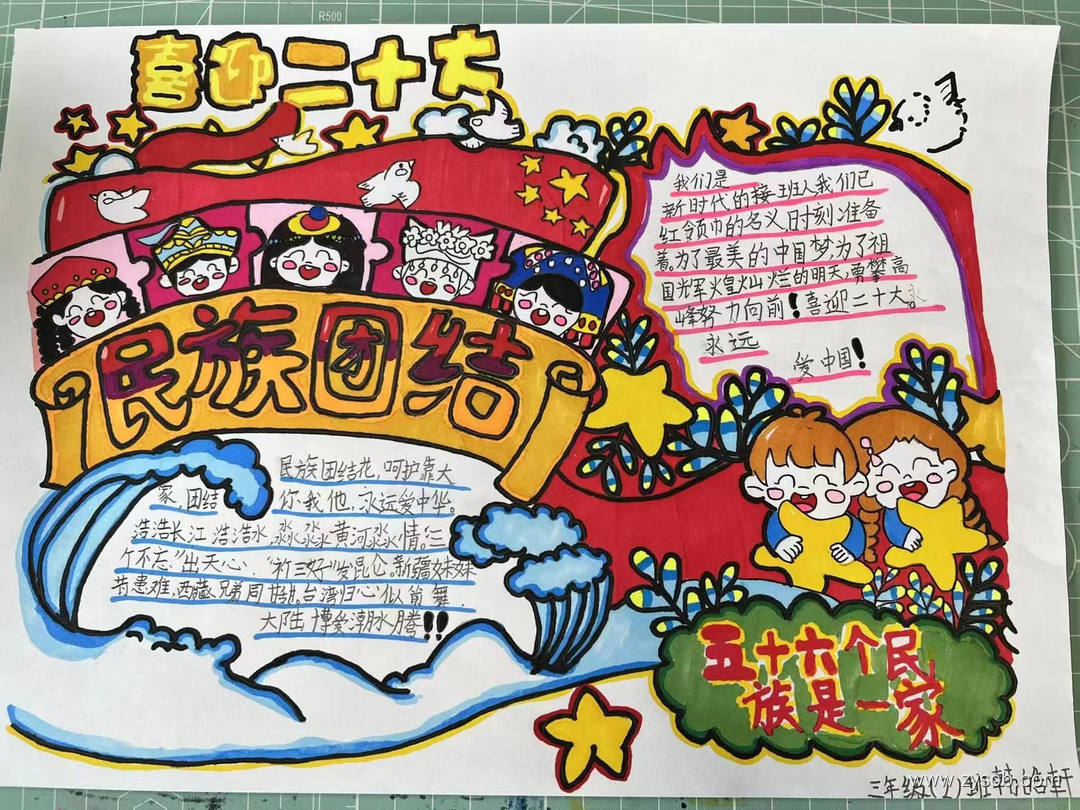 R500
喜迎二十大
我们是
新时代的接班人我们已
红领巾的名义时刻准备
着,为了最美的中国梦,为了祖
国光军火皇灿烂的明天,勇攀高
峰努力向前!喜迎二十大。
永远
爱中国!
民族团结
民族团结花,呵护靠大
家,团结你我他,永远爱中华。
浩浩长江浩浩水,淼淼黄河淼水情。三
个不忘"出天心、"衤三好"发昆仑,新疆妹妹
共患难,西藏兄弟同,台湾归心似前舞.
大陆博爱潮水腾!!
五十六个民
族是一家
三年级(1)班韩皓轩